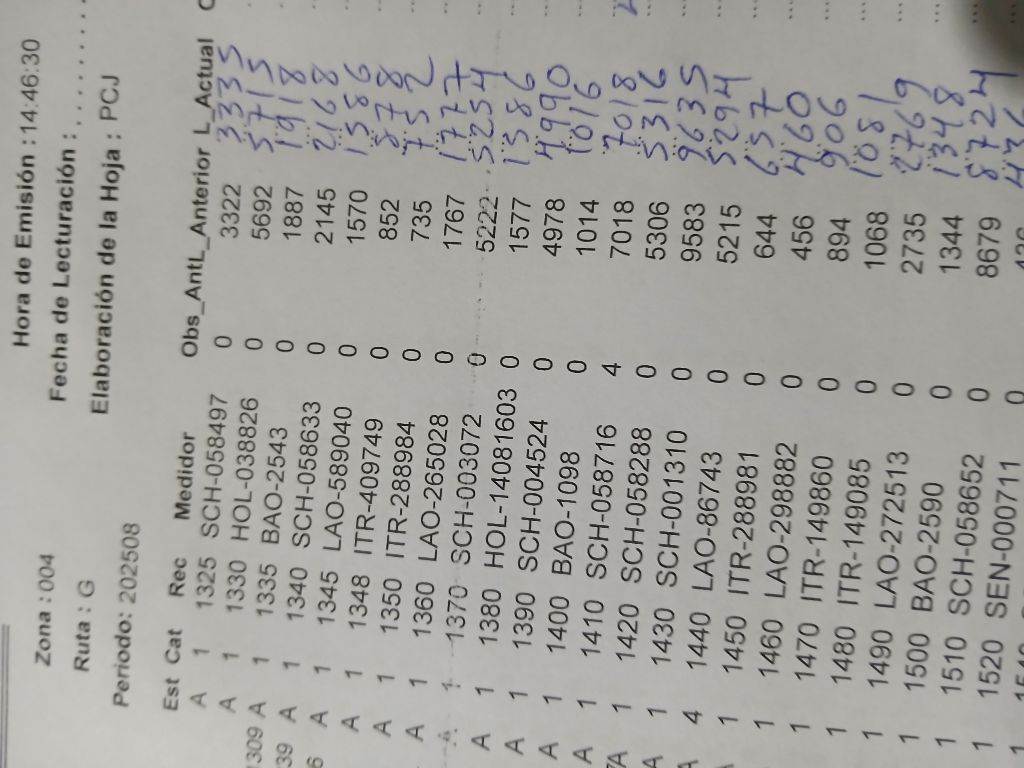 Zona : 004 Hora de Emisión : 14:46:30
Ruta : G Fecha de Lecturación : . . . . . . . .
Periodo: 202508 Elaboración de la Hoja : PCJ
Est Cat Rec Medidor Obs_AntL_Anterior L_Actual
A 1 1325 SCH-058497 0 3322 3335
A 1 1330 HOL-038826 0 5692 5715
1309 A 1 1335 BAO-2543 0 1887 1918
39 A 1 1340 SCH-058633 0 2145 2168
6 A 1 1345 LAO-589040 0 1570 1586
A 1 1348 ITR-409749 0 852 878
A 1 1350 ITR-288984 0 735 752
A 1 1360 LAO-265028 0 1767 1777
A 1 1370 SCH-003072 0 5222 5254
A 1 1380 HOL-14081603 0 1577 1586
A 1 1390 SCH-004524 0 4978 4990
A 1 1400 BAO-1098 0 1014 1016
A 1 1410 SCH-058716 4 7018 7018
A 1 1420 SCH-058288 0 5306 5316
A 1 1430 SCH-001310 0 9583 9635
A 4 1440 LAO-86743 0 5215 5294
1 1450 ITR-288981 0 644 657
1 1460 LAO-298882 0 456 460
1 1470 ITR-149860 0 894 906
1 1480 ITR-149085 0 1068 1081
1 1490 LAO-272513 0 2735 2769
1 1500 BAO-2590 0 1344 1348
1 1510 SCH-058652 0 8679 8724
1 1520 SEN-000711 0